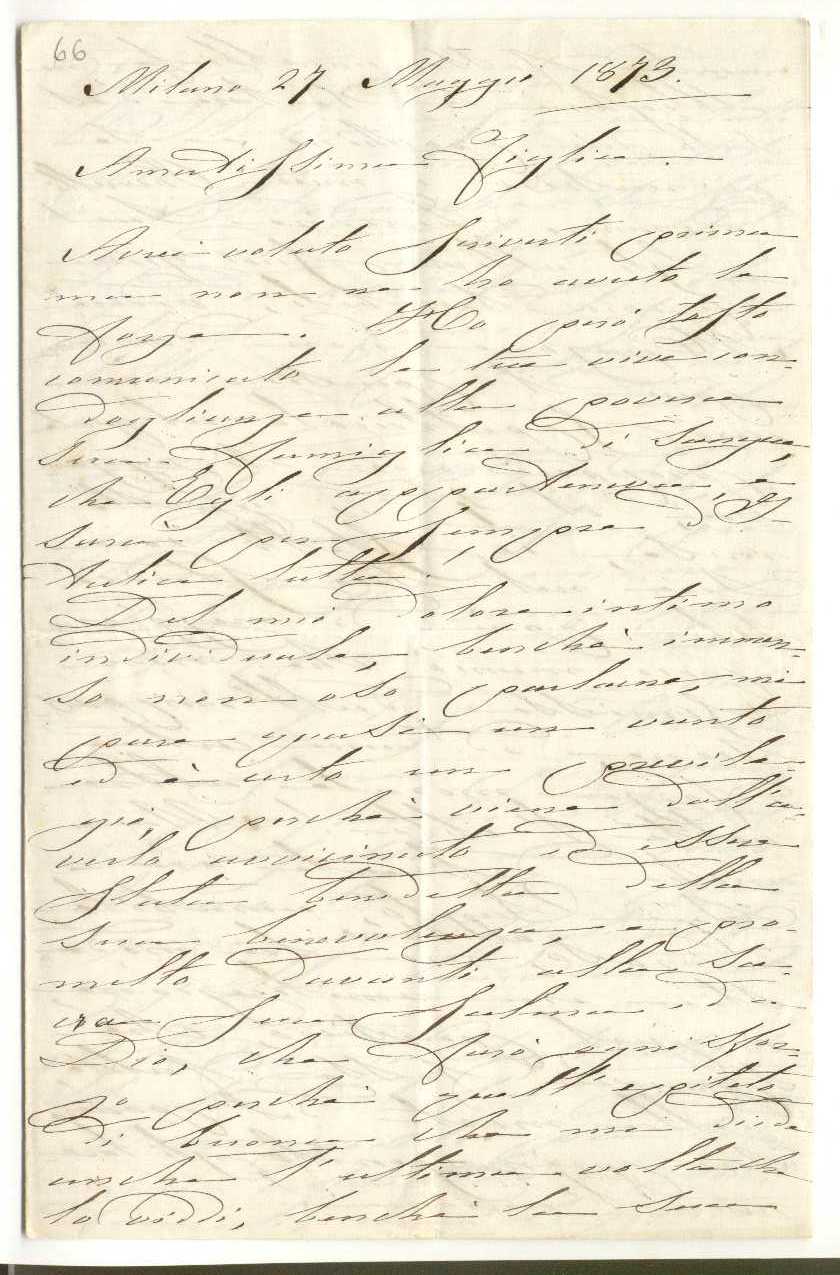 66
Milano 27 Maggio 1873.
Amatissima Figlia.
Avrei voluto scriverti prima
ma non ne ho avuto la
forza. Ho però tosto
comunicato le tue vive con-
doglianze alla povera
sua famiglia di sangue,
ché Egli apparteneva, e
sarà per sempre d'I-
talia tutta.
Del mio dolore intimo
individuale, benchè immen-
so non oso parlarne, mi
pare quasi un vanto
ed è certo un privile-
gio, perchè viene dall'a-
verlo avvicinato ed essere
stata benedetta della
sua benevolenza, e pro-
metto davanti alla sa-
cra Sua Salma, e a
Dio, che farò ogni sfor-
zo perchè quell'epiteto
di buona che mi diede
anche l'ultima volta che
lo viddi, benchè la sua